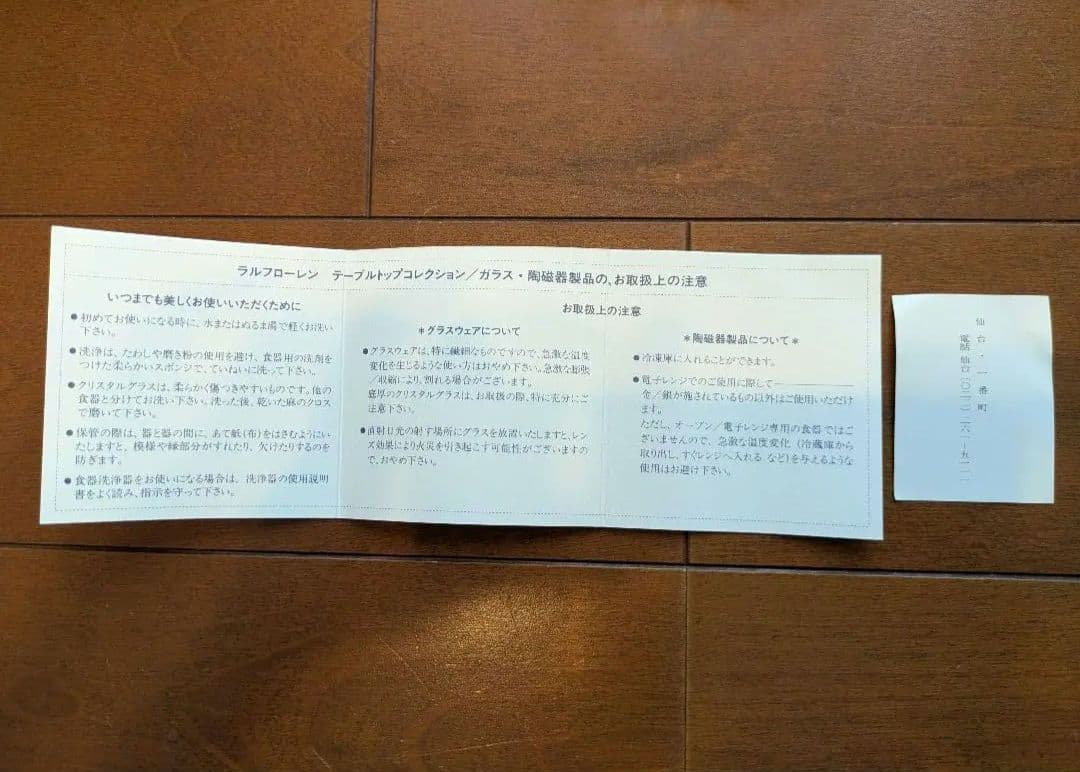 ラルフローレン テーブルトップコレクション／ガラス・陶磁器製品の、お取扱上の注意
いつまでも美しくお使いいただくために
●初めてお使いになる時に、水またはぬるま湯で軽くお洗い
下さい。
●洗浄は、たわしや磨き粉の使用を避け、食器用の洗剤を
つけた柔らかいスポンジで、ていねいに洗って下さい。
●クリスタルグラスは、柔らかく傷つきやすいものです。他の
食器と分けてお洗い下さい。洗った後、乾いた麻のクロス
で磨いて下さい。
●保管の際は、器と器の間に、あて紙(布)をはさむようにい
たしますと、模様や縁部分がすれたり、欠けたりするのを
防ぎます。
●食器洗浄器をお使いになる場合は、洗浄器の使用説明
書をよく読み、指示を守って下さい。
お取扱上の注意
＊グラスウェアについて
●グラスウェアは、特に繊細なものですので、急激な温度
変化を生じるような使い方はおやめ下さい。急激な膨張
/収縮により、割れる場合がございます。
底厚のクリスタルグラスは、お取扱の際、特に充分にご
注意下さい。
●直射日光の射す場所にグラスを放置いたしますと、レン
ズ効果により火災を引き起こす可能性がございますの
で、おやめ下さい。
＊陶磁器製品について＊
●冷凍庫に入れることができます。
●電子レンジでのご使用に際して
金／銀が施されているもの以外はご使用いただけ
ます。
ただし、オーブン／電子レンジ専用の食器ではご
ざいませんので、急激な温度変化（冷蔵庫から
取り出し、すぐレンジへ入れる など)を与えるような
使用はお避け下さい。
仙台・一番町
電話 仙台